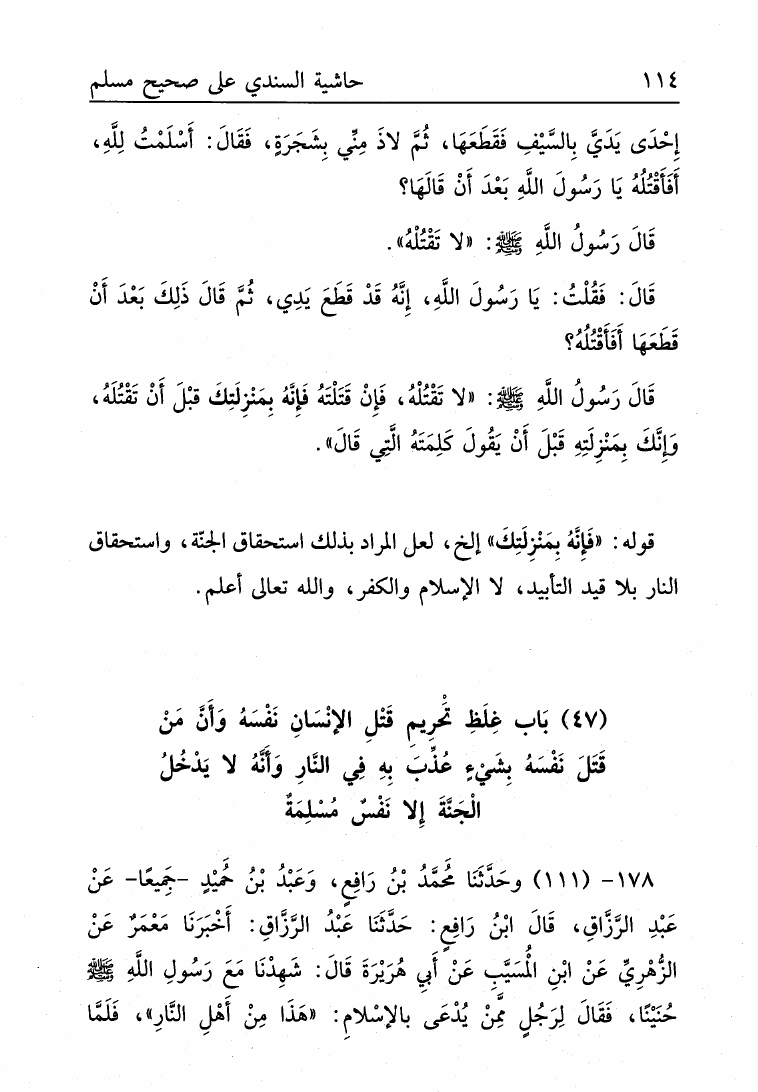 ١١٤ حاشية السندي على صحيح مسلم
إِحْدَى يَدَيَّ بِالسَّيْفِ فَقَطَعَهَا، ثُمَّ لاذَ مِنِّي بِشَجَرَةٍ، فَقَالَ: أَسْلَمْتُ لِلَّهِ،
أَفَأَقْتُلُهُ يَا رَسُولَ اللَّهِ بَعْدَ أَنْ قَالَهَا؟
قَالَ رَسُولُ اللَّهِ ﷺ: «لا تَقْتُلْهُ».
قَالَ: فَقُلْتُ: يَا رَسُولَ اللَّهِ، إِنَّهُ قَدْ قَطَعَ يَدِي، ثُمَّ قَالَ ذَلِكَ بَعْدَ أَنْ
قَطَعَهَا أَفَأَقْتُلُهُ؟
قَالَ رَسُولُ اللَّهِ ﷺ: «لا تَقْتُلْهُ، فَإِنْ قَتَلْتَهُ فَإِنَّهُ بِمَنْزِلَتِكَ قَبْلَ أَنْ تَقْتُلَهُ،
وَإِنَّكَ بِمَنْزِلَتِهِ قَبْلَ أَنْ يَقُولَ كَلِمَتَهُ الَّتِي قَالَ».
قوله: «فَإِنَّهُ بِمَنْزِلَتِكَ» إلخ، لعل المراد بذلك استحقاق الجنّة، واستحقاق
النار بلا قيد التأبيد، لا الإسلام والكفر، والله تعالى أعلم.
(٤٧) بَاب غِلَظِ تَحْرِيمِ قَتْلِ الإِنْسَانِ نَفْسَهُ وَأَنَّ مَنْ
قَتَلَ نَفْسَهُ بِشَيْءٍ عُذِّبَ بِهِ فِي النَّارِ وَأَنَّهُ لا يَدْخُلُ
الْجَنَّةَ إِلا نَفْسٌ مُسْلِمَةٌ
١٧٨- (١١١) وحَدَّثَنَا مُحَمَّدُ بْنُ رَافِعٍ، وَعَبْدُ بْنُ حُمَيْدٍ -جَمِيعًا- عَنْ
عَبْدِ الرَّزَّاقِ، قَالَ ابْنُ رَافِعٍ: حَدَّثَنَا عَبْدُ الرَّزَّاقِ: أَخْبَرَنَا مَعْمَرٌ عَنْ
الزُّهْرِيِّ عَنْ ابْنِ الْمُسَيَّبِ عَنْ أَبِي هُرَيْرَةَ قَالَ: شَهِدْنَا مَعَ رَسُولِ اللَّهِ ﷺ
حُنَيْنًا، فَقَالَ لِرَجُلٍ مِمَّنْ يُدْعَى بِالإِسْلامِ: «هَذَا مِنْ أَهْلِ النَّارِ»، فَلَمَّا